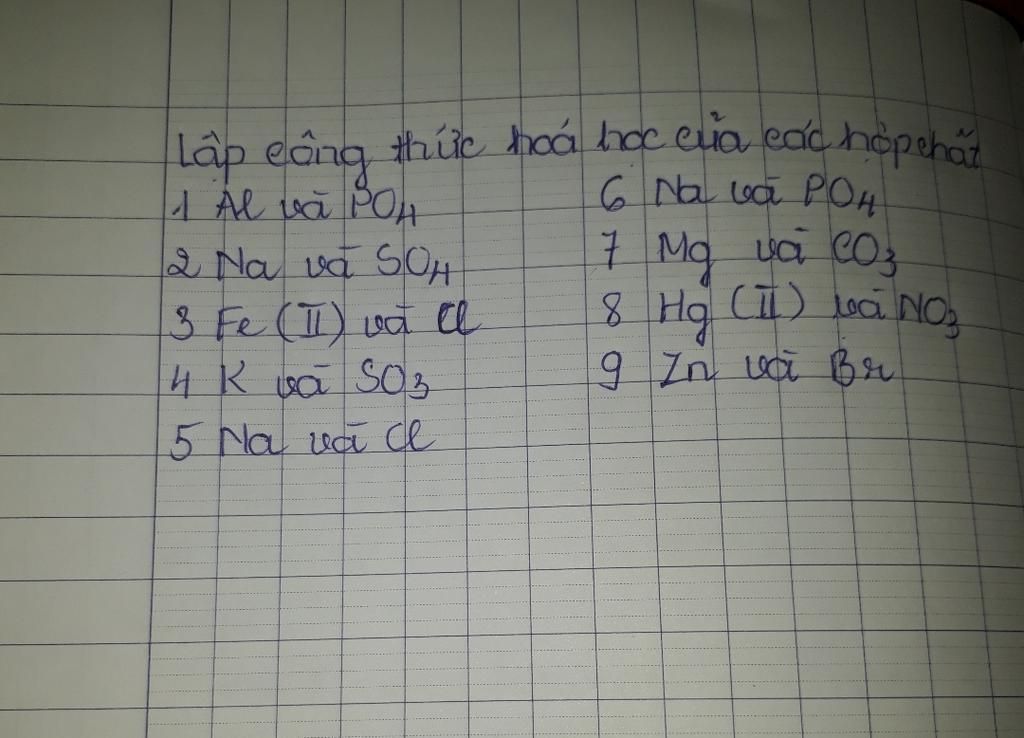 Lập công thức hoá học của các hợp chất
1 Al và PO4
2 Na và SO4
3 Fe (II) và Cl
4 K và SO3
5 Na và Cl
6 Na và PO4
7 Mg và CO3
8 Hg (II) và NO3
9 Zn và Br